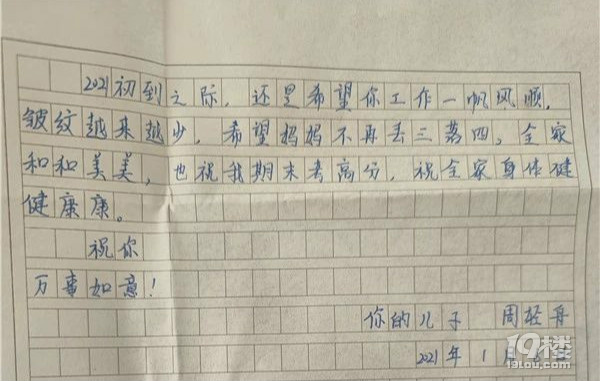 2021初到之际，还是希望你工作一帆风顺，
皱纹越来越少，希望妈妈不再丢三落四。全家
和和美美，也祝我期末考高分，祝全家身体健
健康康。
祝你
万事如意！
你的儿子 周轻舟
2021年1月
19楼
19lou.com